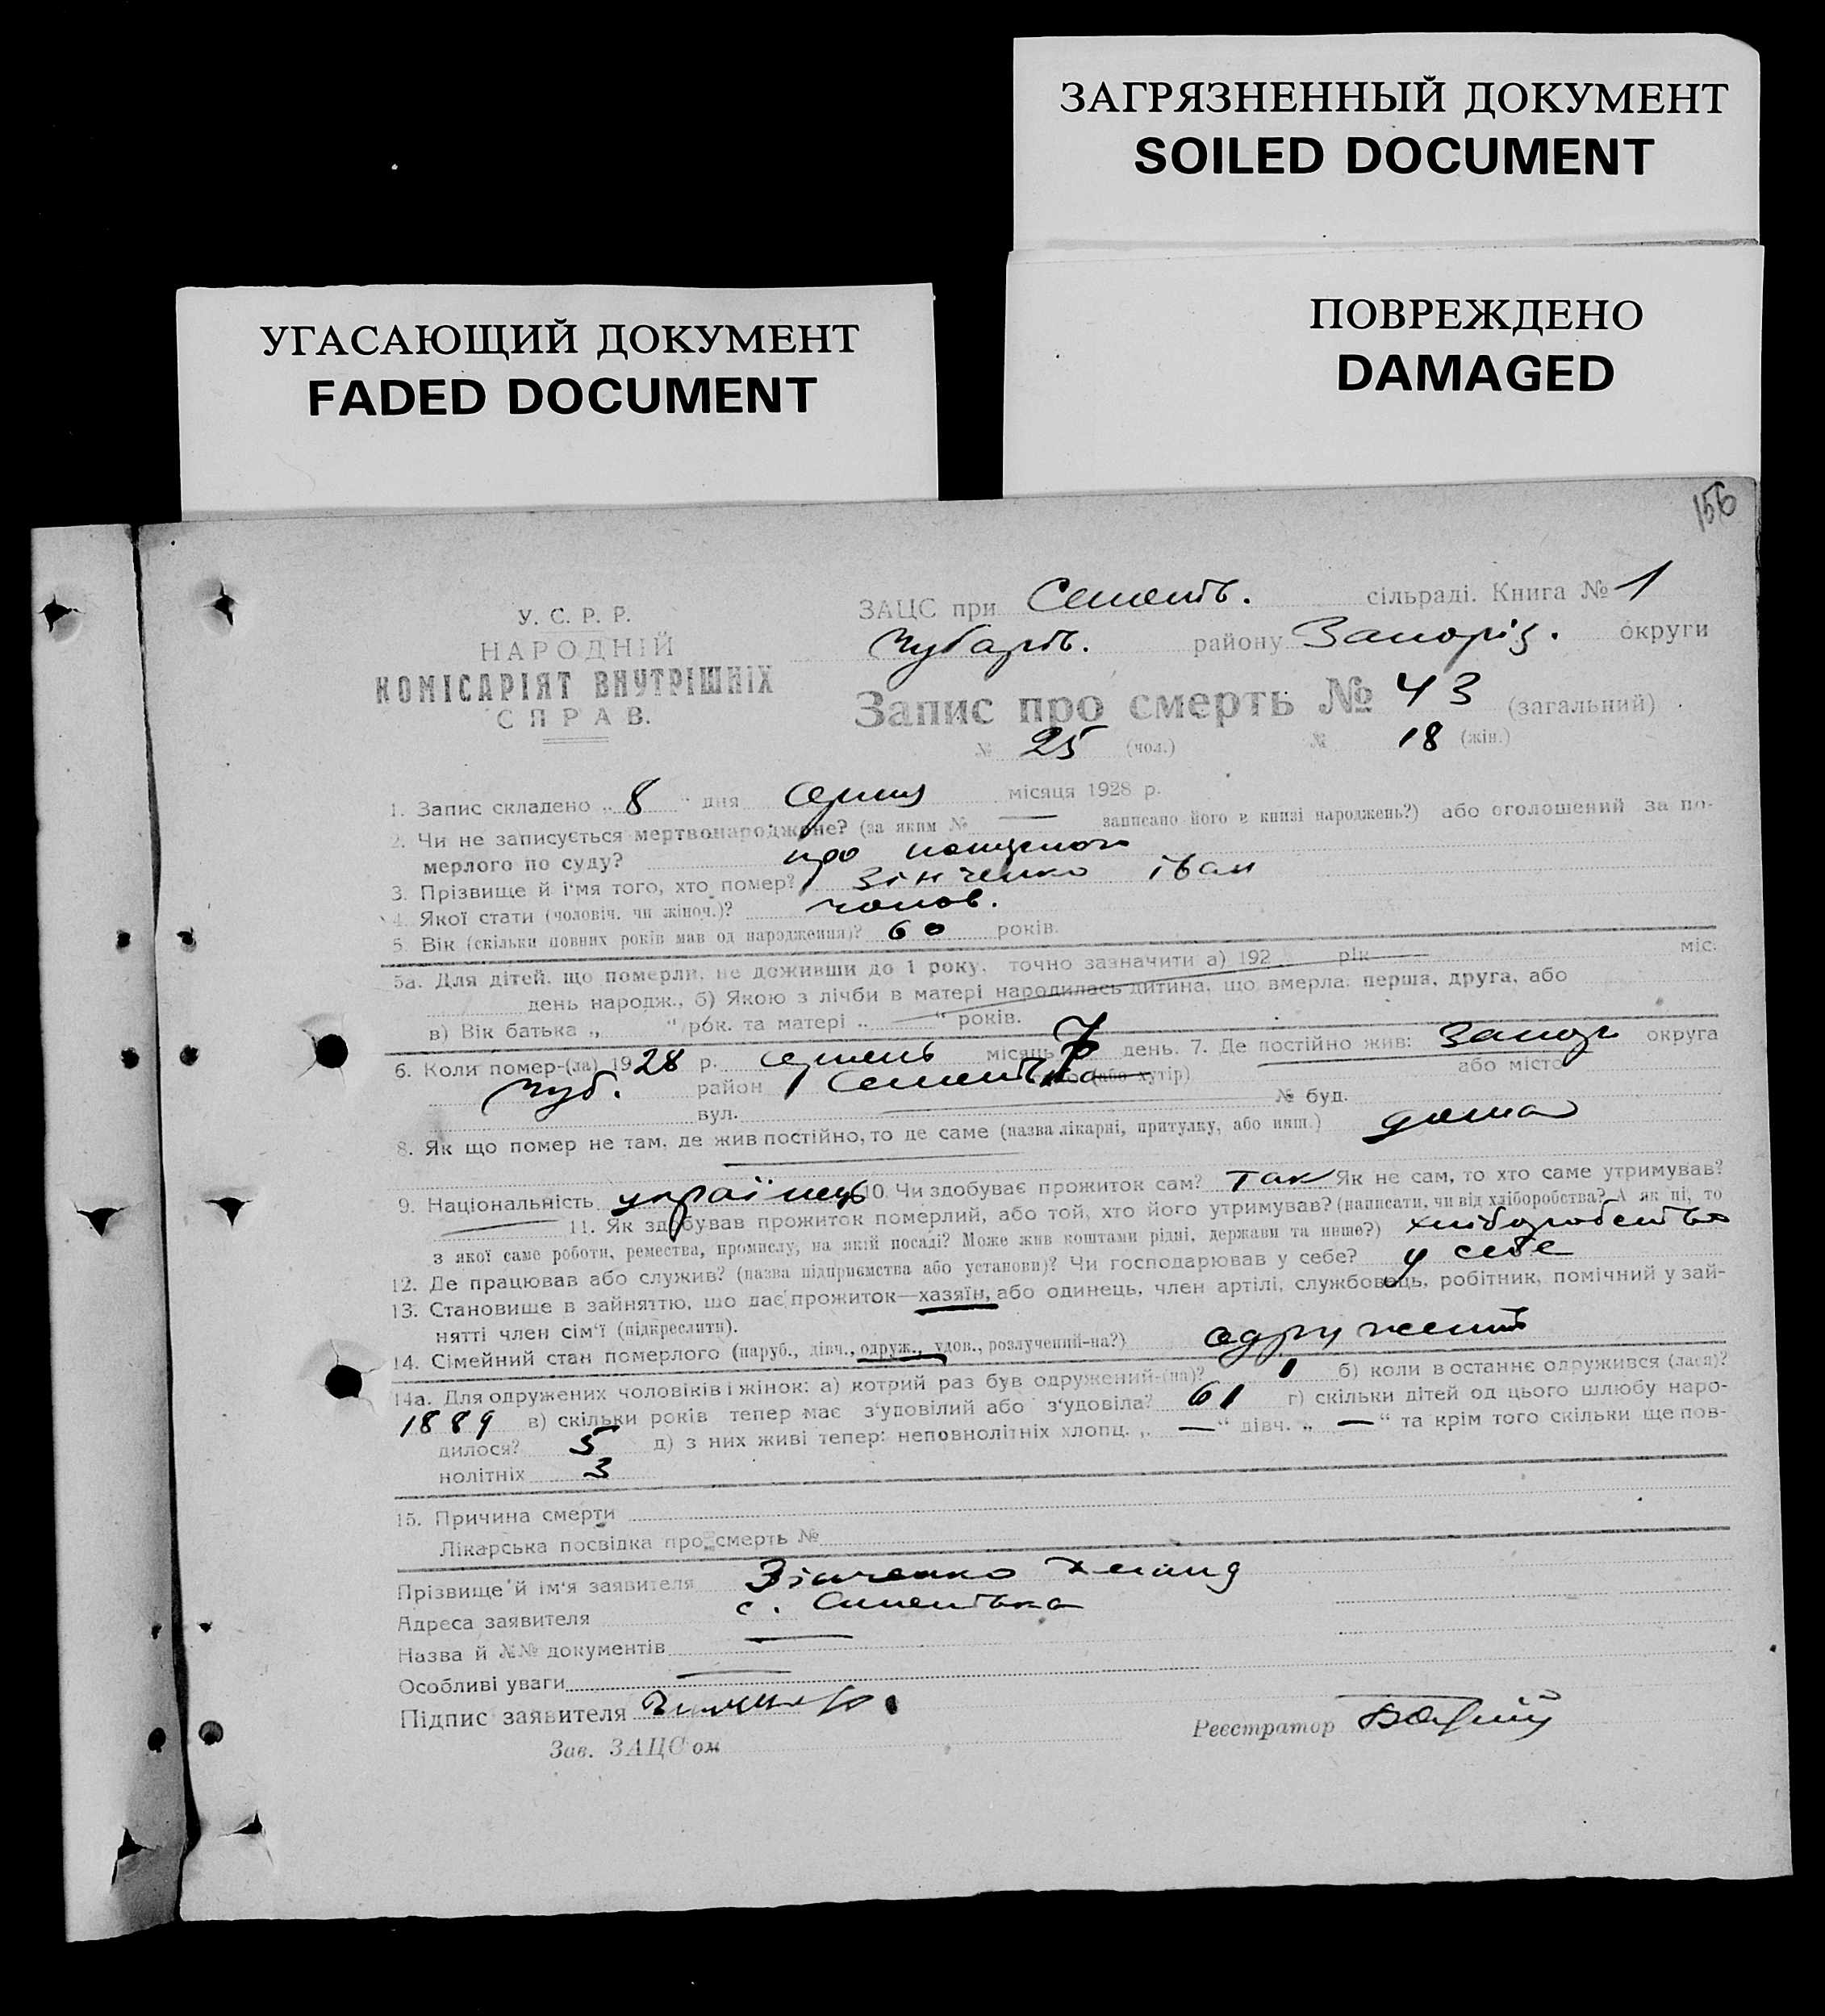 ЗАГРЯЗНЕННЫЙ ДОКУМЕНТ
SOILED DOCUMENT
УГАСАЮЩИЙ ДОКУМЕНТ
FADED DOCUMENT
ПОВРЕЖДЕНО
DAMAGED
156
У. С. Р. Р.
НАРОДНІЙ
КОМІСАРІЯТ ВНУТРІШНІХ
СПРАВ.
ЗАЦС при Сементь. сільраді. Книга № 1
Чубарів. району Запоріз. округи
Запис про смерть № 43 (загальний)
№ 25 (чол.) № 18 (жін.)
1. Запис складено „ 8 " дня серпня місяця 1928 р.
2. Чи не записується мертвонароджене? (за яким № — записано його в книзі народжень?) або оголошений за по-
мерлого по суду? про
3. Прізвище й ім'я того, хто помер? Зінченко Іван
4. Якої стати (чоловіч. чи жіноч.)? чолов.
5. Вік (скільки повних років мав од народження)? 60 років.
5а. Для дітей, що померли, не доживши до 1 року, точно зазначити а) 192 рік міс.
день народж., б) Якою з лічби в матері народилась дитина, що вмерла: перша, друга, або
в) Вік батька „ " рок. та матері „ — " років.
6. Коли помер-(ла) 1928 р. серпень місяць 7 день. 7. Де постійно жив: Запоріз округа
Чуб. район (або хутір) або місто
вул. № буд.
8. Як що помер не там, де жив постійно, то де саме (назва лікарні, притулку, або инш.) дома
9. Національність українець 10. Чи здобуває прожиток сам? Так Як не сам, то хто саме утримував?
— 11. Як здобував прожиток померлий, або той, хто його утримував? (написати, чи від хліборобства? А як ні, то
з якої саме роботи, ремества, промислу, на якій посаді? Може жив коштами рідні, держави та инше?) хліборобство
12. Де працював або служив? (назва підприємства або установи)? Чи господарював у себе? у себе
13. Становище в зайняттю, що дає прожиток—хазяїн, або одинець, член артілі, службовець, робітник, помічний у зай-
нятті член сім'ї (підкреслити).
14. Сімейний стан померлого (паруб., дівч., одруж., удов., розлучений-на?) одружений
14а. Для одружених чоловіків і жінок: а) котрий раз був одружений-(на)? 1 б) коли в останнє одружився (лася)?
1889 в) скільки років тепер має з'уповілий або з'удовіла? 61 г) скільки дітей од цього шлюбу наро-
дилося? 5 д) з них живі тепер: неповнолітніх хлопц. „ — " дівч. „ — " та крім того скільки ще пов-
нолітніх 3
15. Причина смерти
Лікарська посвідка про смерть №
Прізвище й ім'я заявителя Зінченко
Адреса заявителя с.
Назва й №№ документів —
Особливі уваги —
Підпис заявителя
Реєстратор
Зав. ЗАЦС'ом